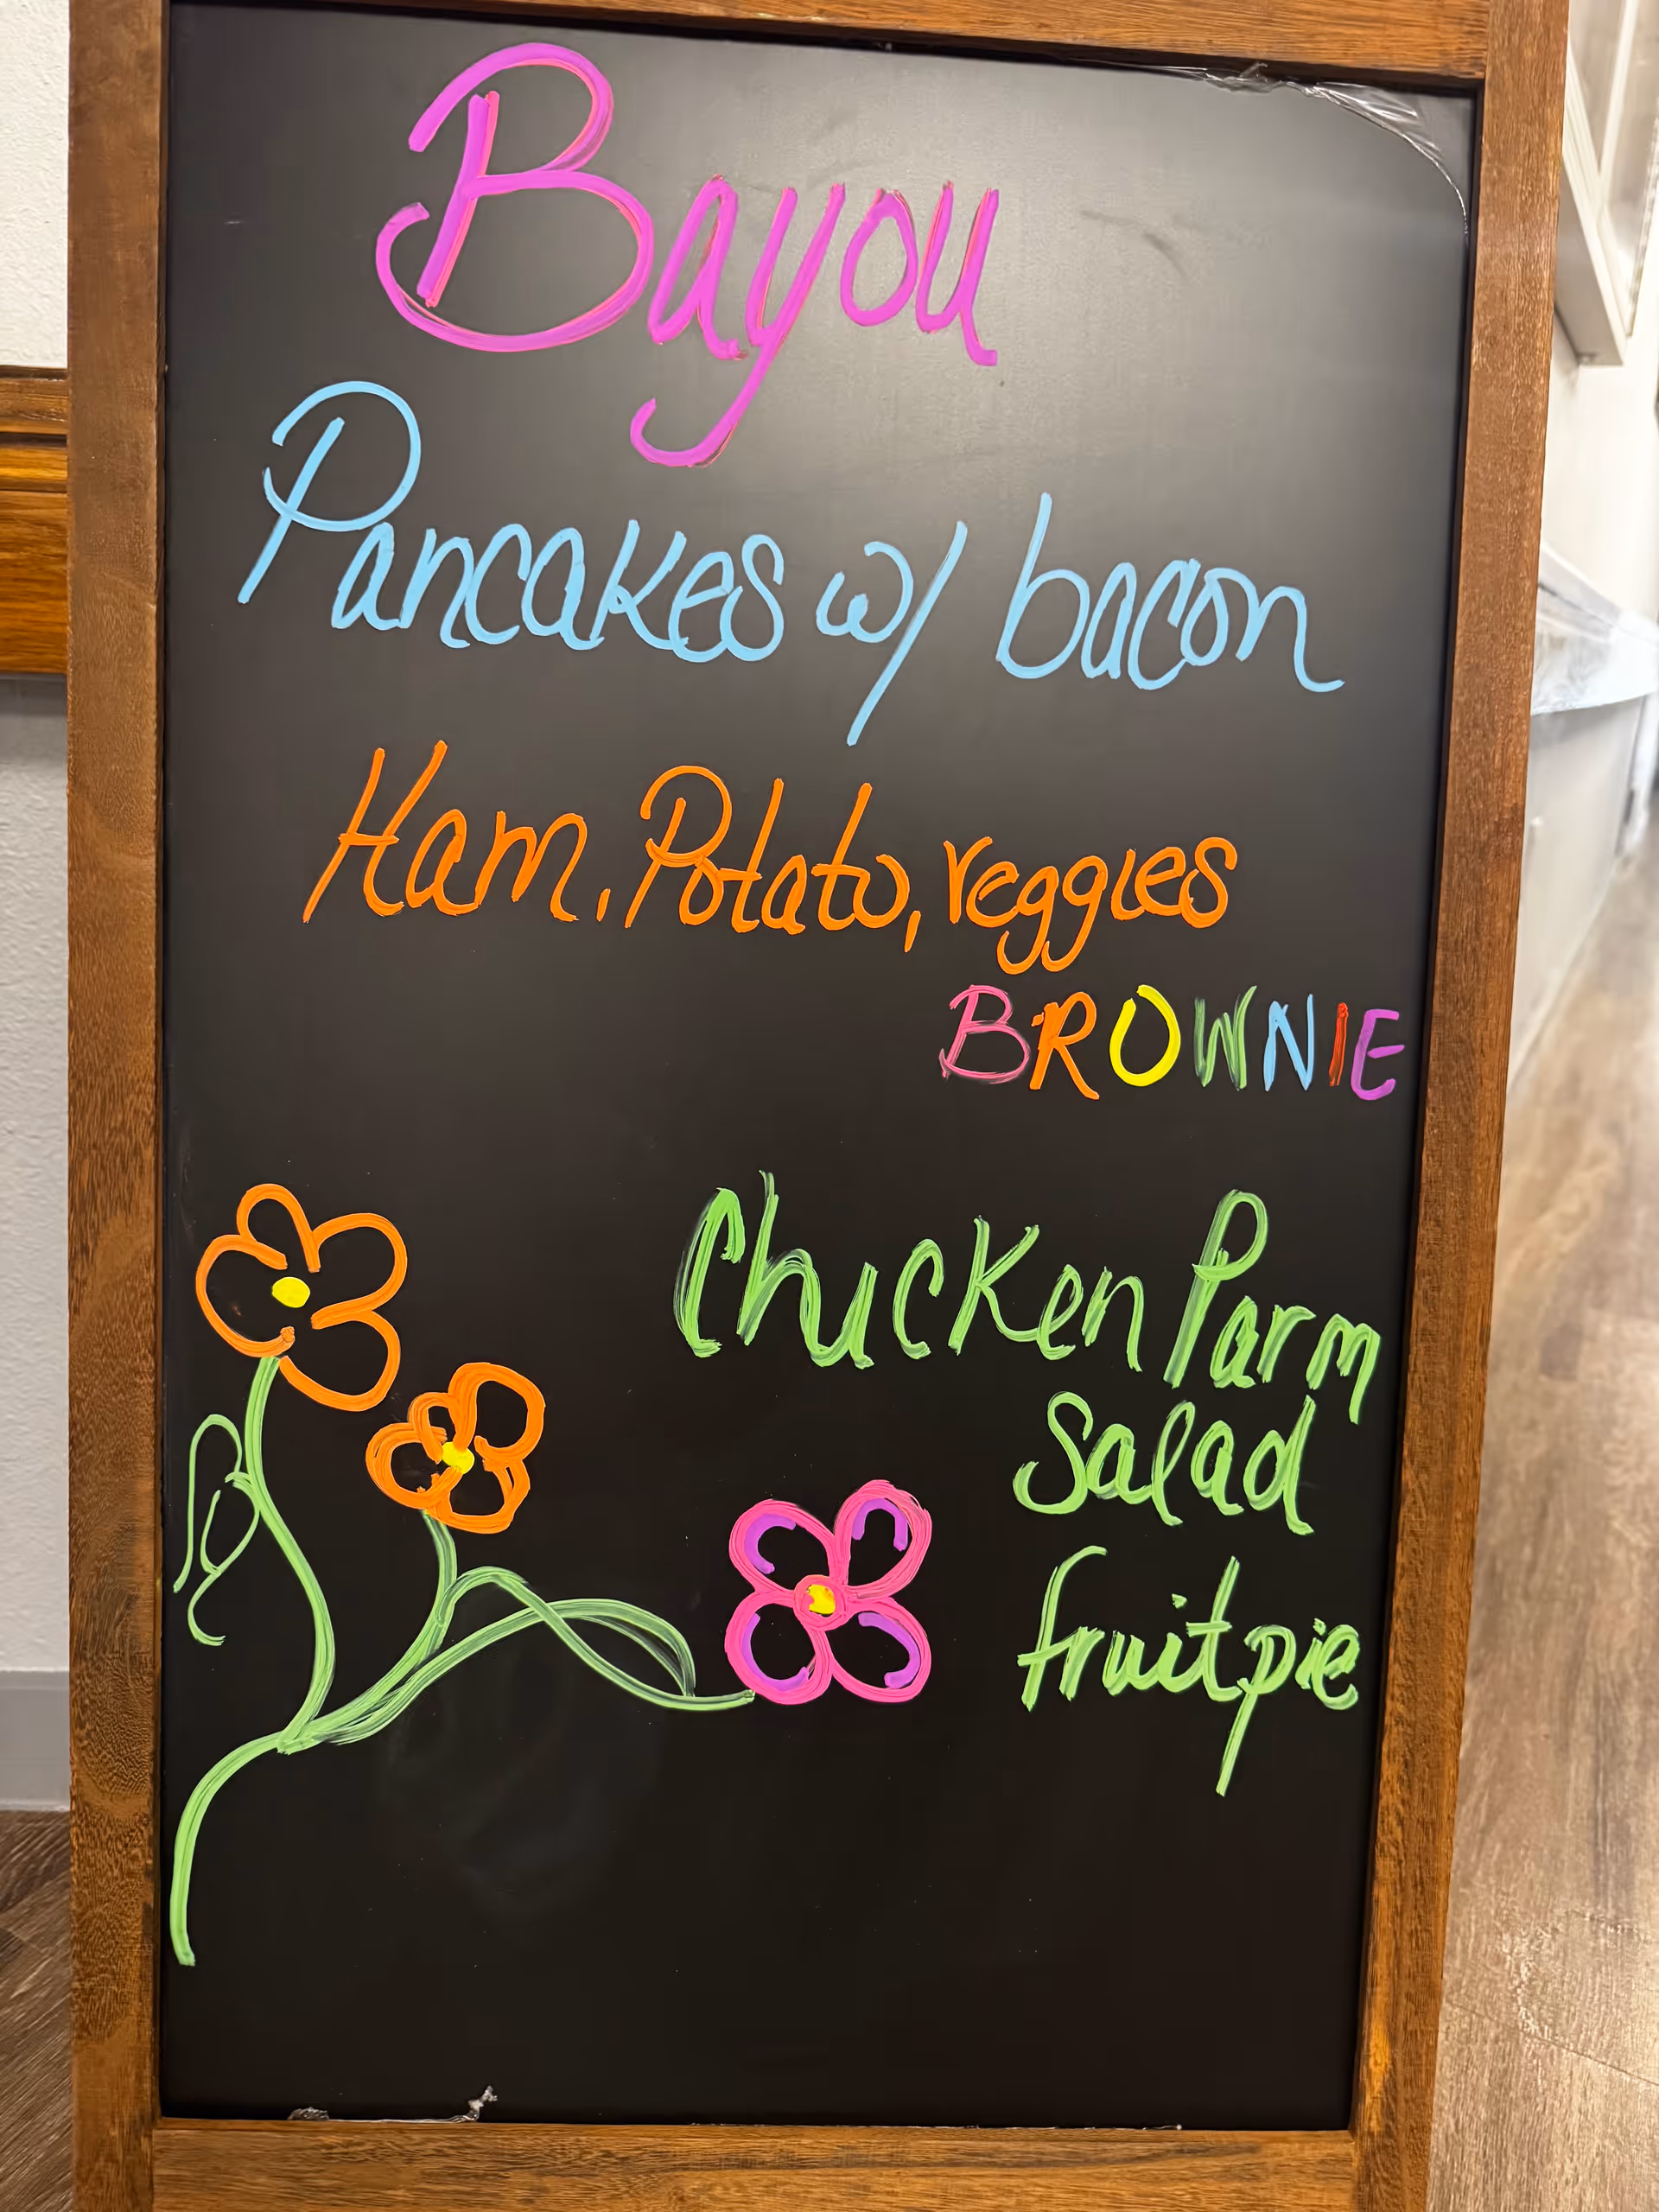 Bayou
Pancakes w/ bacon
Ham, Potato, veggies
BROWNIE
Chicken Parm
Salad
fruit pie